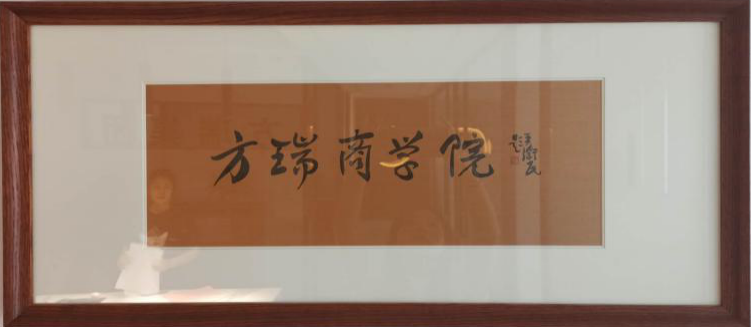 方瑞商学院